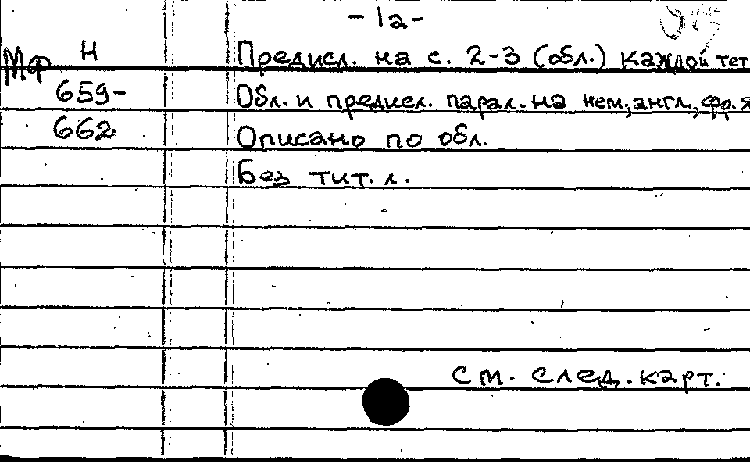 - 1а -
Мф Н Предисл. на с. 2-3 (обл.) каждой тет
659- Обл. и предисл. парал. на нем, англ, фр. я
662 Описано по обл.
Без тит. л.
см. след. карт.